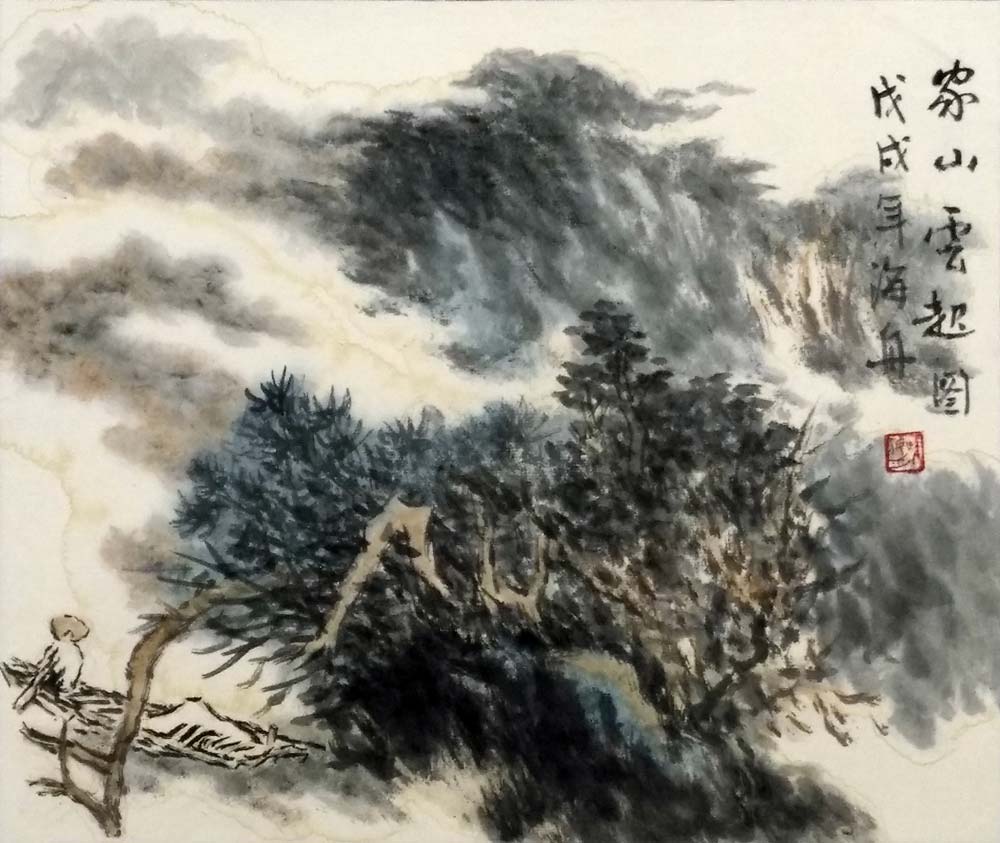 家山雲起图
戊戌年海舟